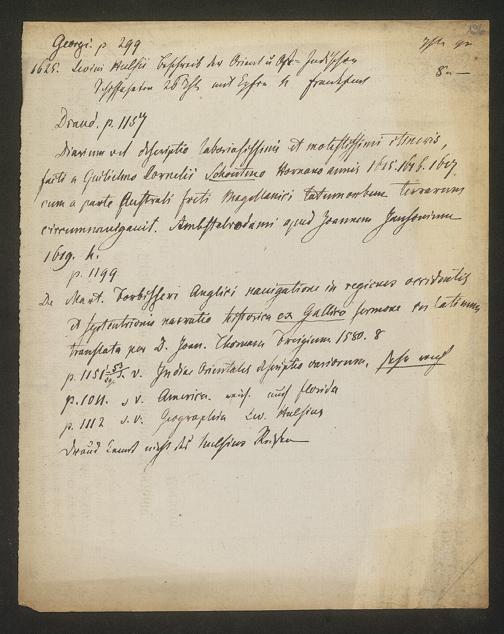 Georgi. p 299
1625. Levini Hulsii Beschreib. der Orient u Ost-Indischen
Schiffarten 26 Thle mit Kpfrn 4 Frankfurt 8 n —
Draud. p. 1157
Diarium vel descriptio laboriosissimi et molestissimi itineris,
facti a Guilielmo Cornelii Schoutenio Hornano annis 1615. 1616. 1617.
cum a parte Australi freti Magellanici terrarum
circumnavigavit. Amsterodami apud Joannem Jansonium
1619. 4.
p. 1199
De Mart. Forbisseri Angli navigatione in regiones occidentis
et septentrionis narratio historica ex Gallico sermone in latinum
translata per D. Joan. Thomam Freigium. 1580. 8
p. 1151 s. v. Indiae Orientales descriptio variorum,
p. 1011. s v. America. auch Florida
p. 1112 s. v. Geographia Lev. Hulsius
Draud kennt nicht des Hulsius Reisen